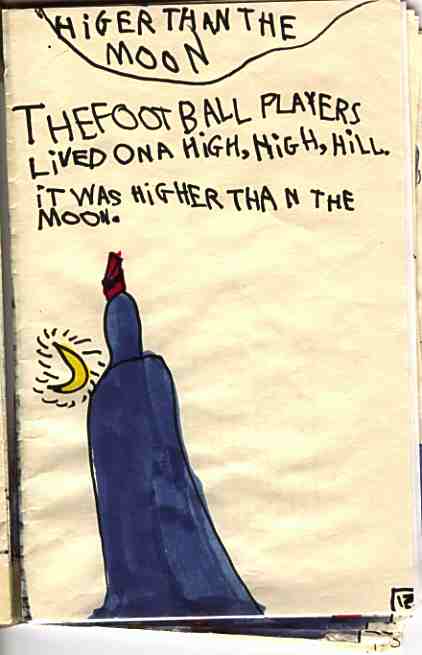 HiGER THAN THE
MOON
THEFOOTBALL PLAYERS
LiVED ONA HiGH, HiGH, HiLL.
iT WAS HiGHER THAN THE
MOON.
12